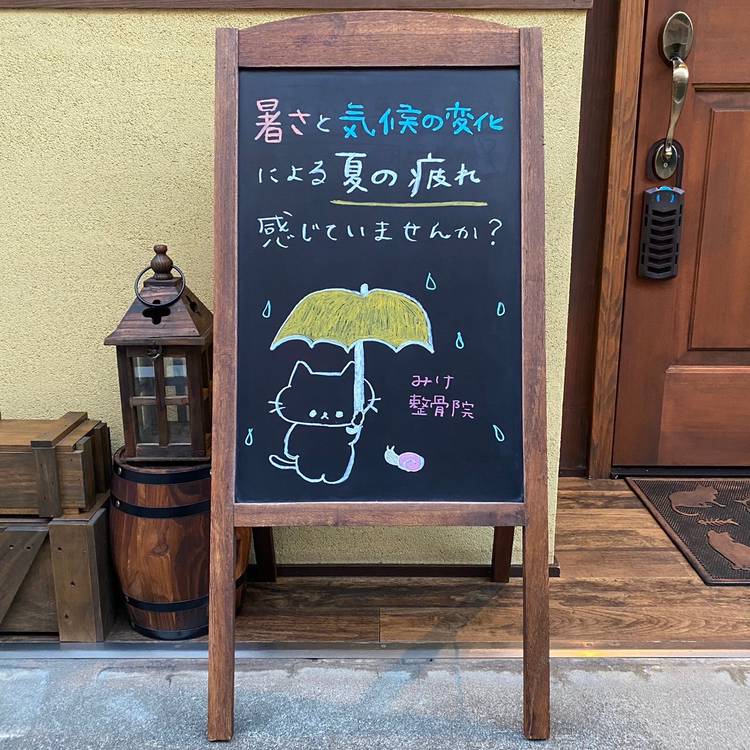 暑さと気候の変化
による夏の疲れ
感じていませんか？
みけ
整骨院